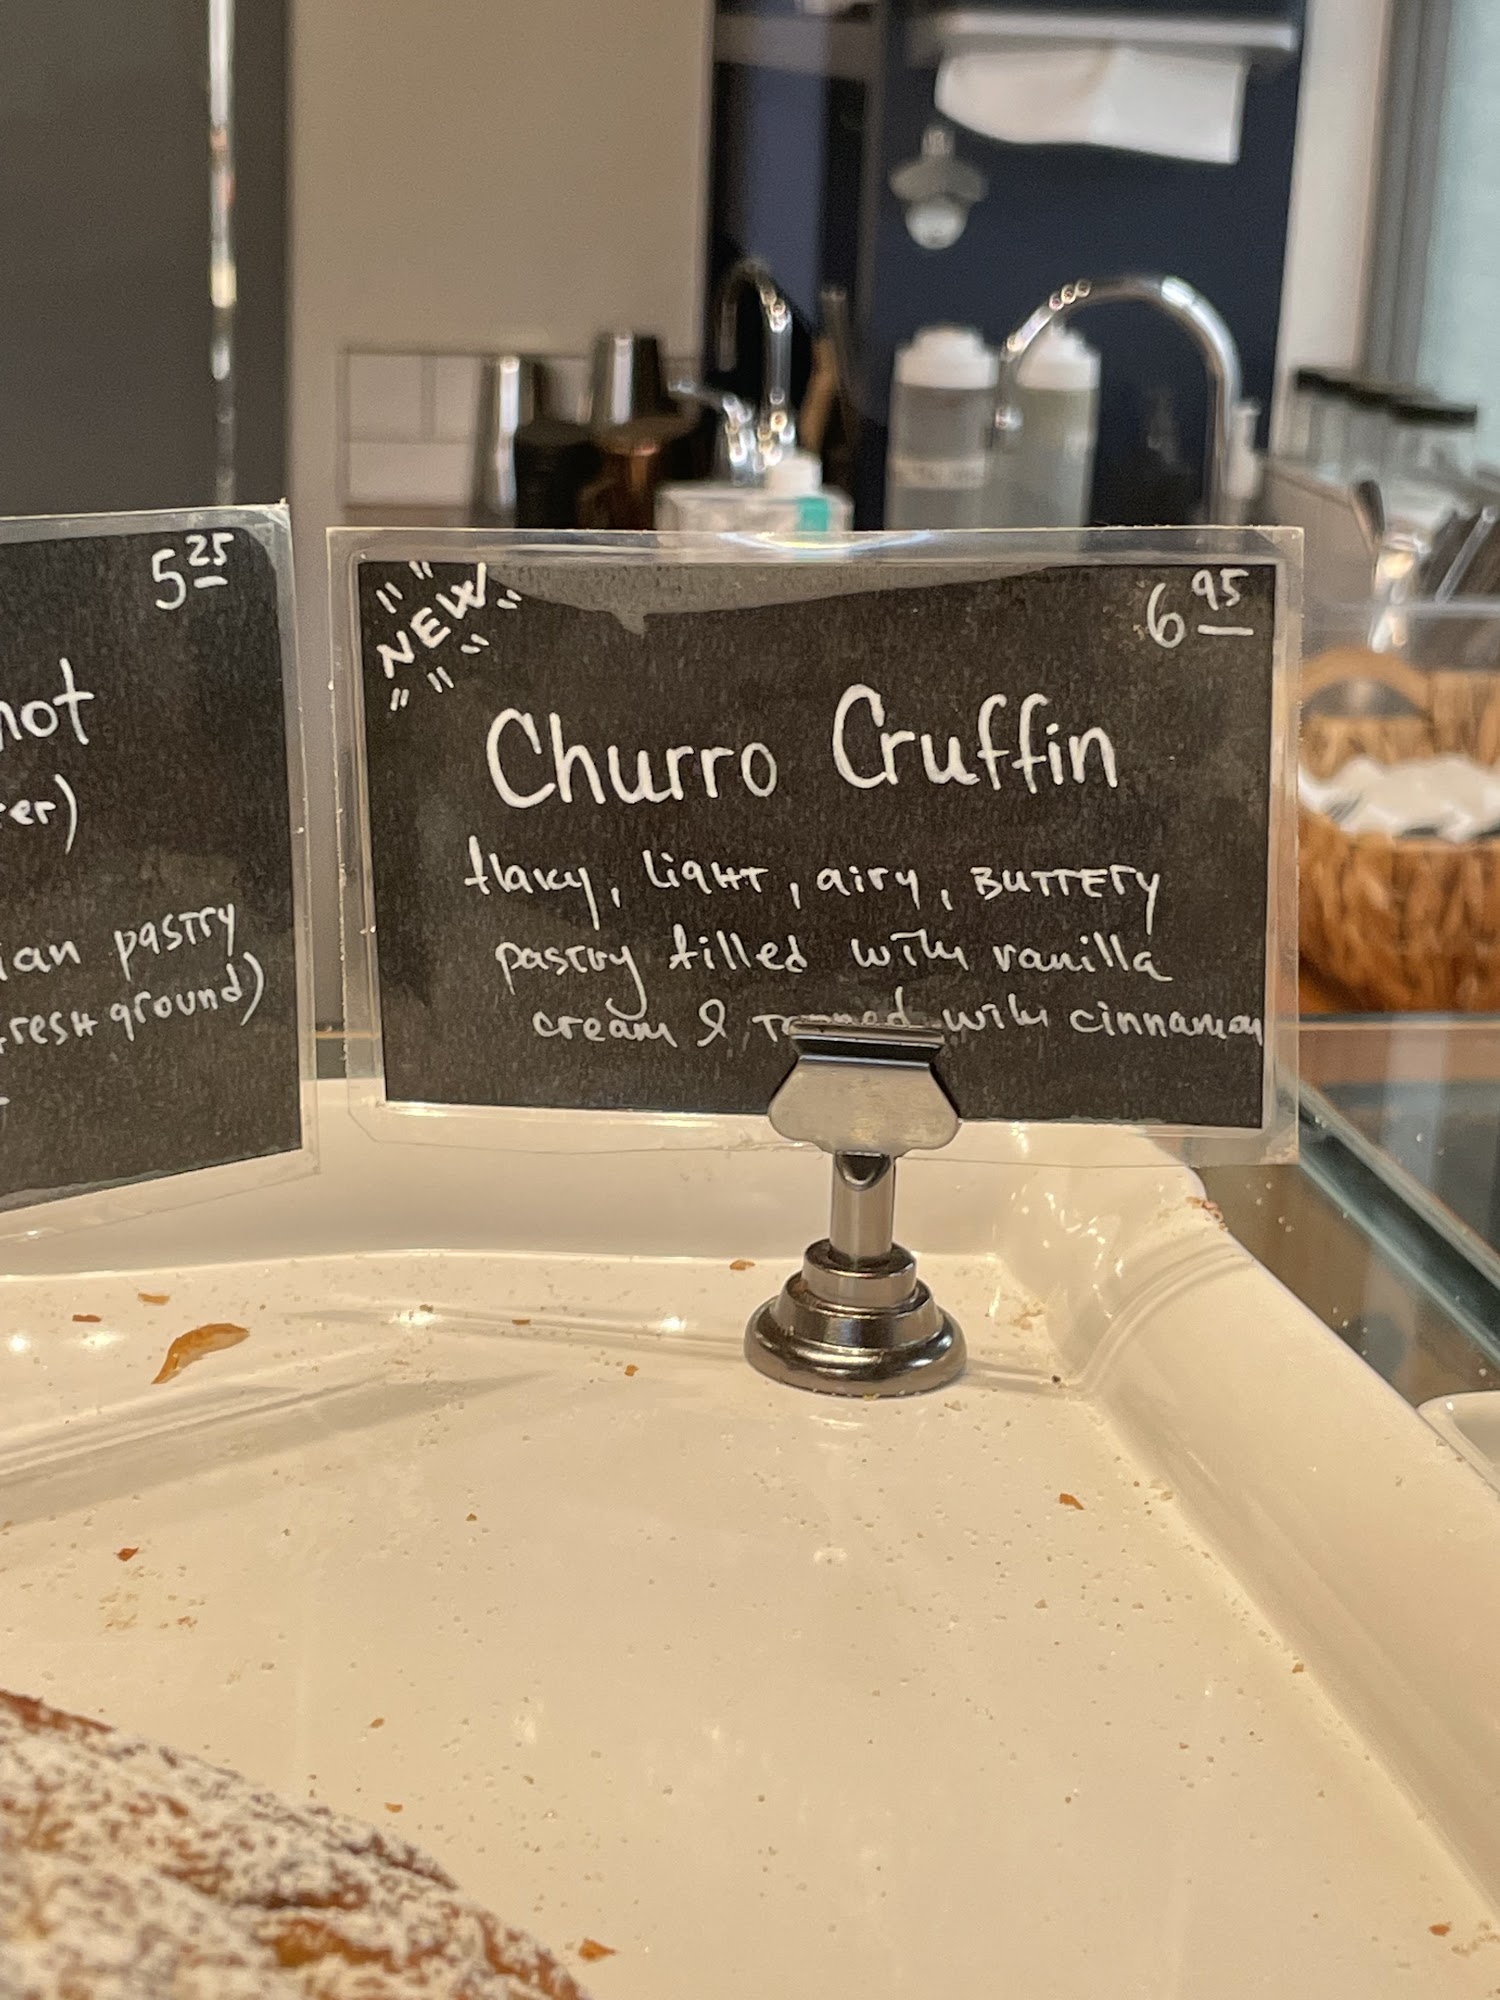 5 25
not
er)
ian pastry
fresh ground)
NEW
6 95
Churro Cruffin
flaky, light, airy, BUTTERY
pastry filled with vanilla
cream & topped with cinnamon